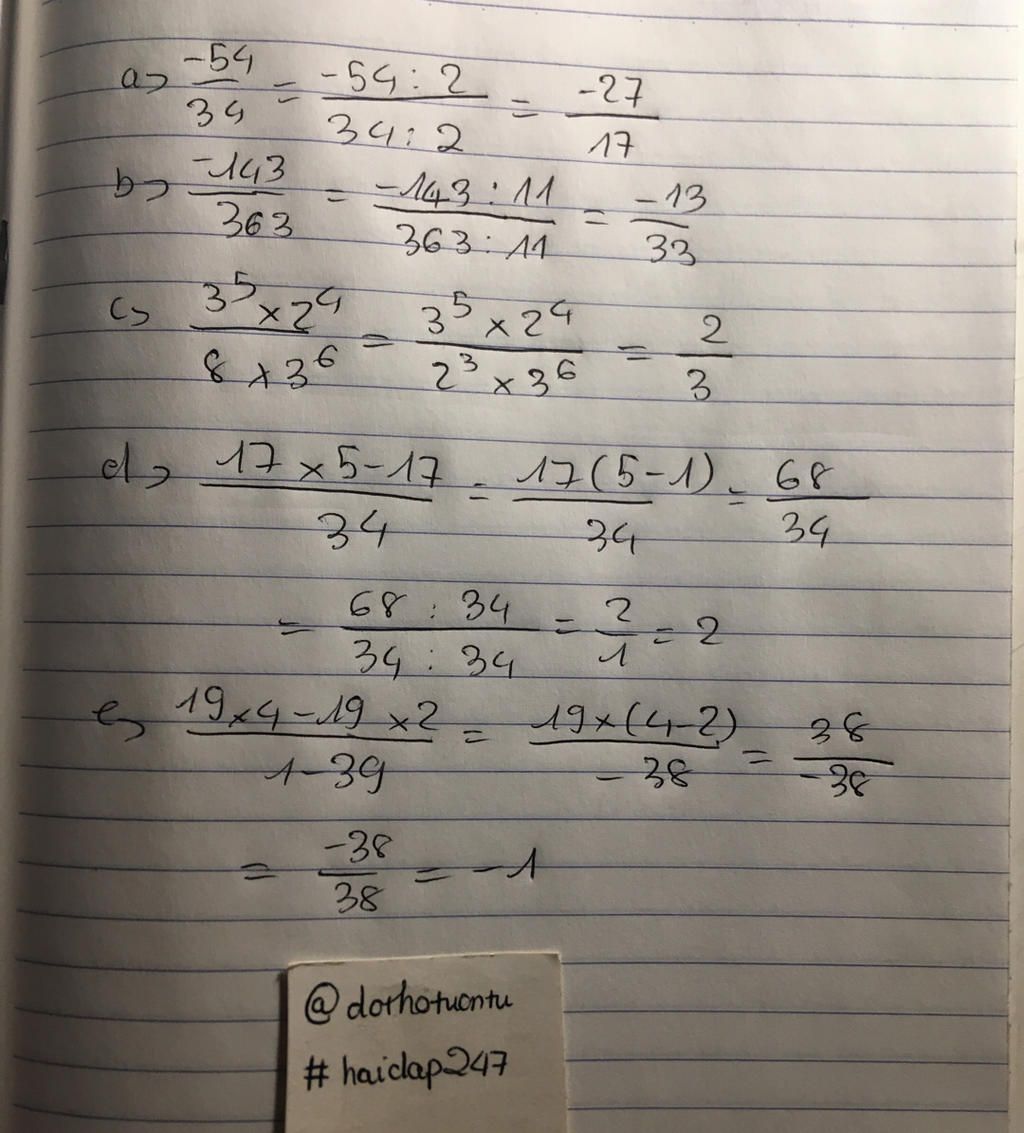 a> -54/34 = -54 : 2/34 : 2 = -27/17
b> -143/363 = -143 : 11/363 : 11 = -13/33
c> 3⁵ × 2⁴/8 × 3⁶ = 3⁵ × 2⁴/2³ × 3⁶ = 2/3
d> 17 × 5 - 17/34 = 17(5 - 1)/34 = 68/34
= 68 : 34/34 : 34 = 2/1 = 2
e> 19 × 4 - 19 × 2/1 - 39 = 19 × (4 - 2)/-38 = 38/-38
= -38/38 = -1
@dorhotuontu
# haiclap247